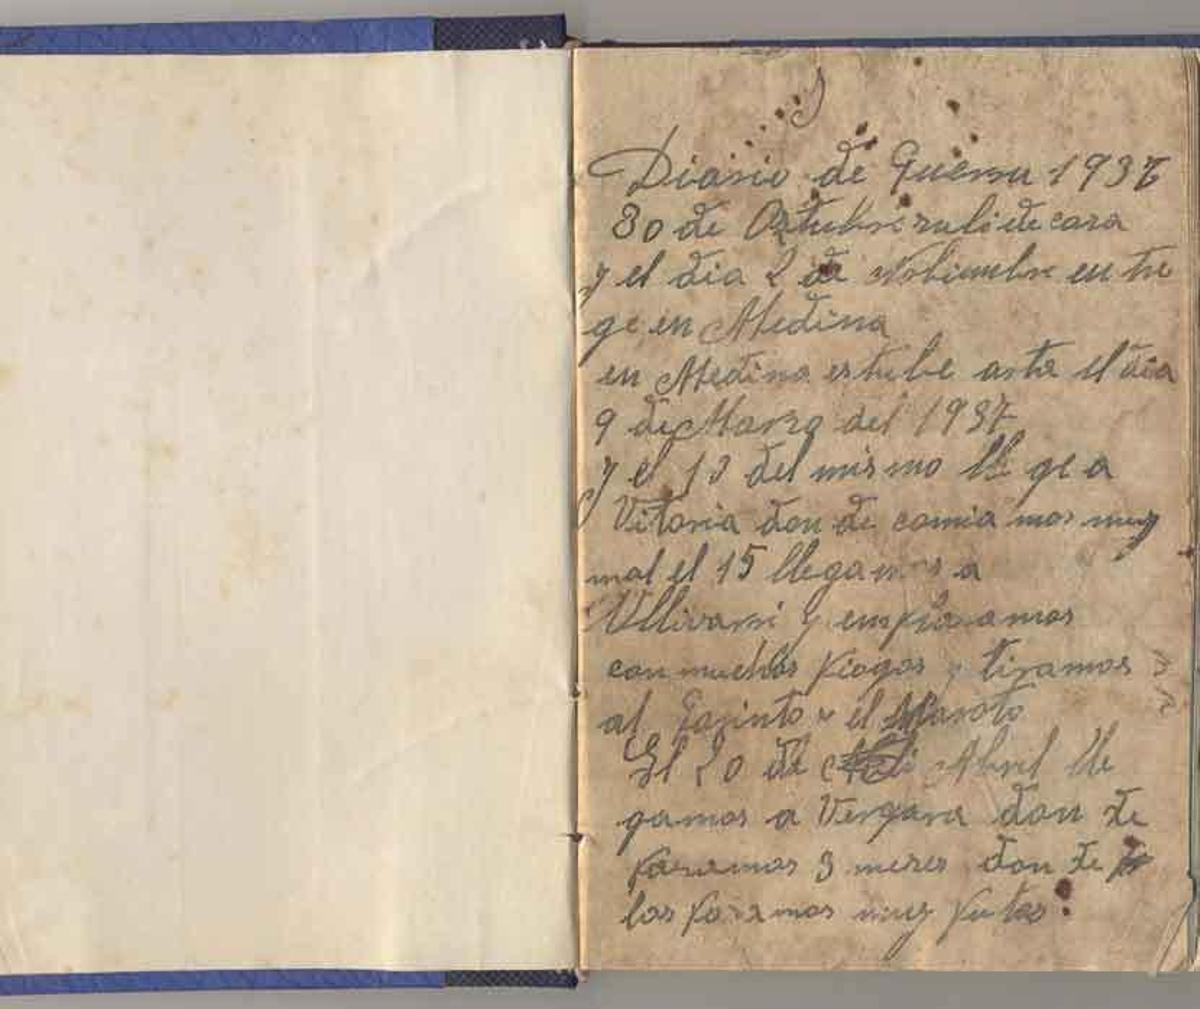 Diario de Guerra 1937
30 de Octubre sali de casa
y el dia 2 de Nobiembre en tre
ge en Medina
en Medina estube asta el dia
9 de Marzo del 1937
y el 10 del mismo lle ge a
Vitoria don de comia mos muy
mal el 15 llegamos a
Ullivarri y empezamos
con muchos piogos y tiramos
al Jasinto y el Maroto
El 20 de Abril lle
gamos a Vergara don de
pasemos 3 meses don de
los pasamos muy putas